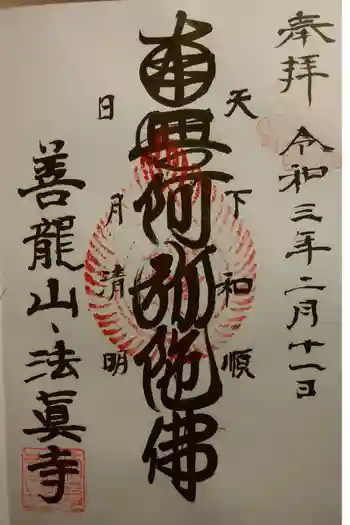 奉拝
令和三年二月十一日
天下和順
南無阿弥陀佛
日月清明
善龍山、法眞寺